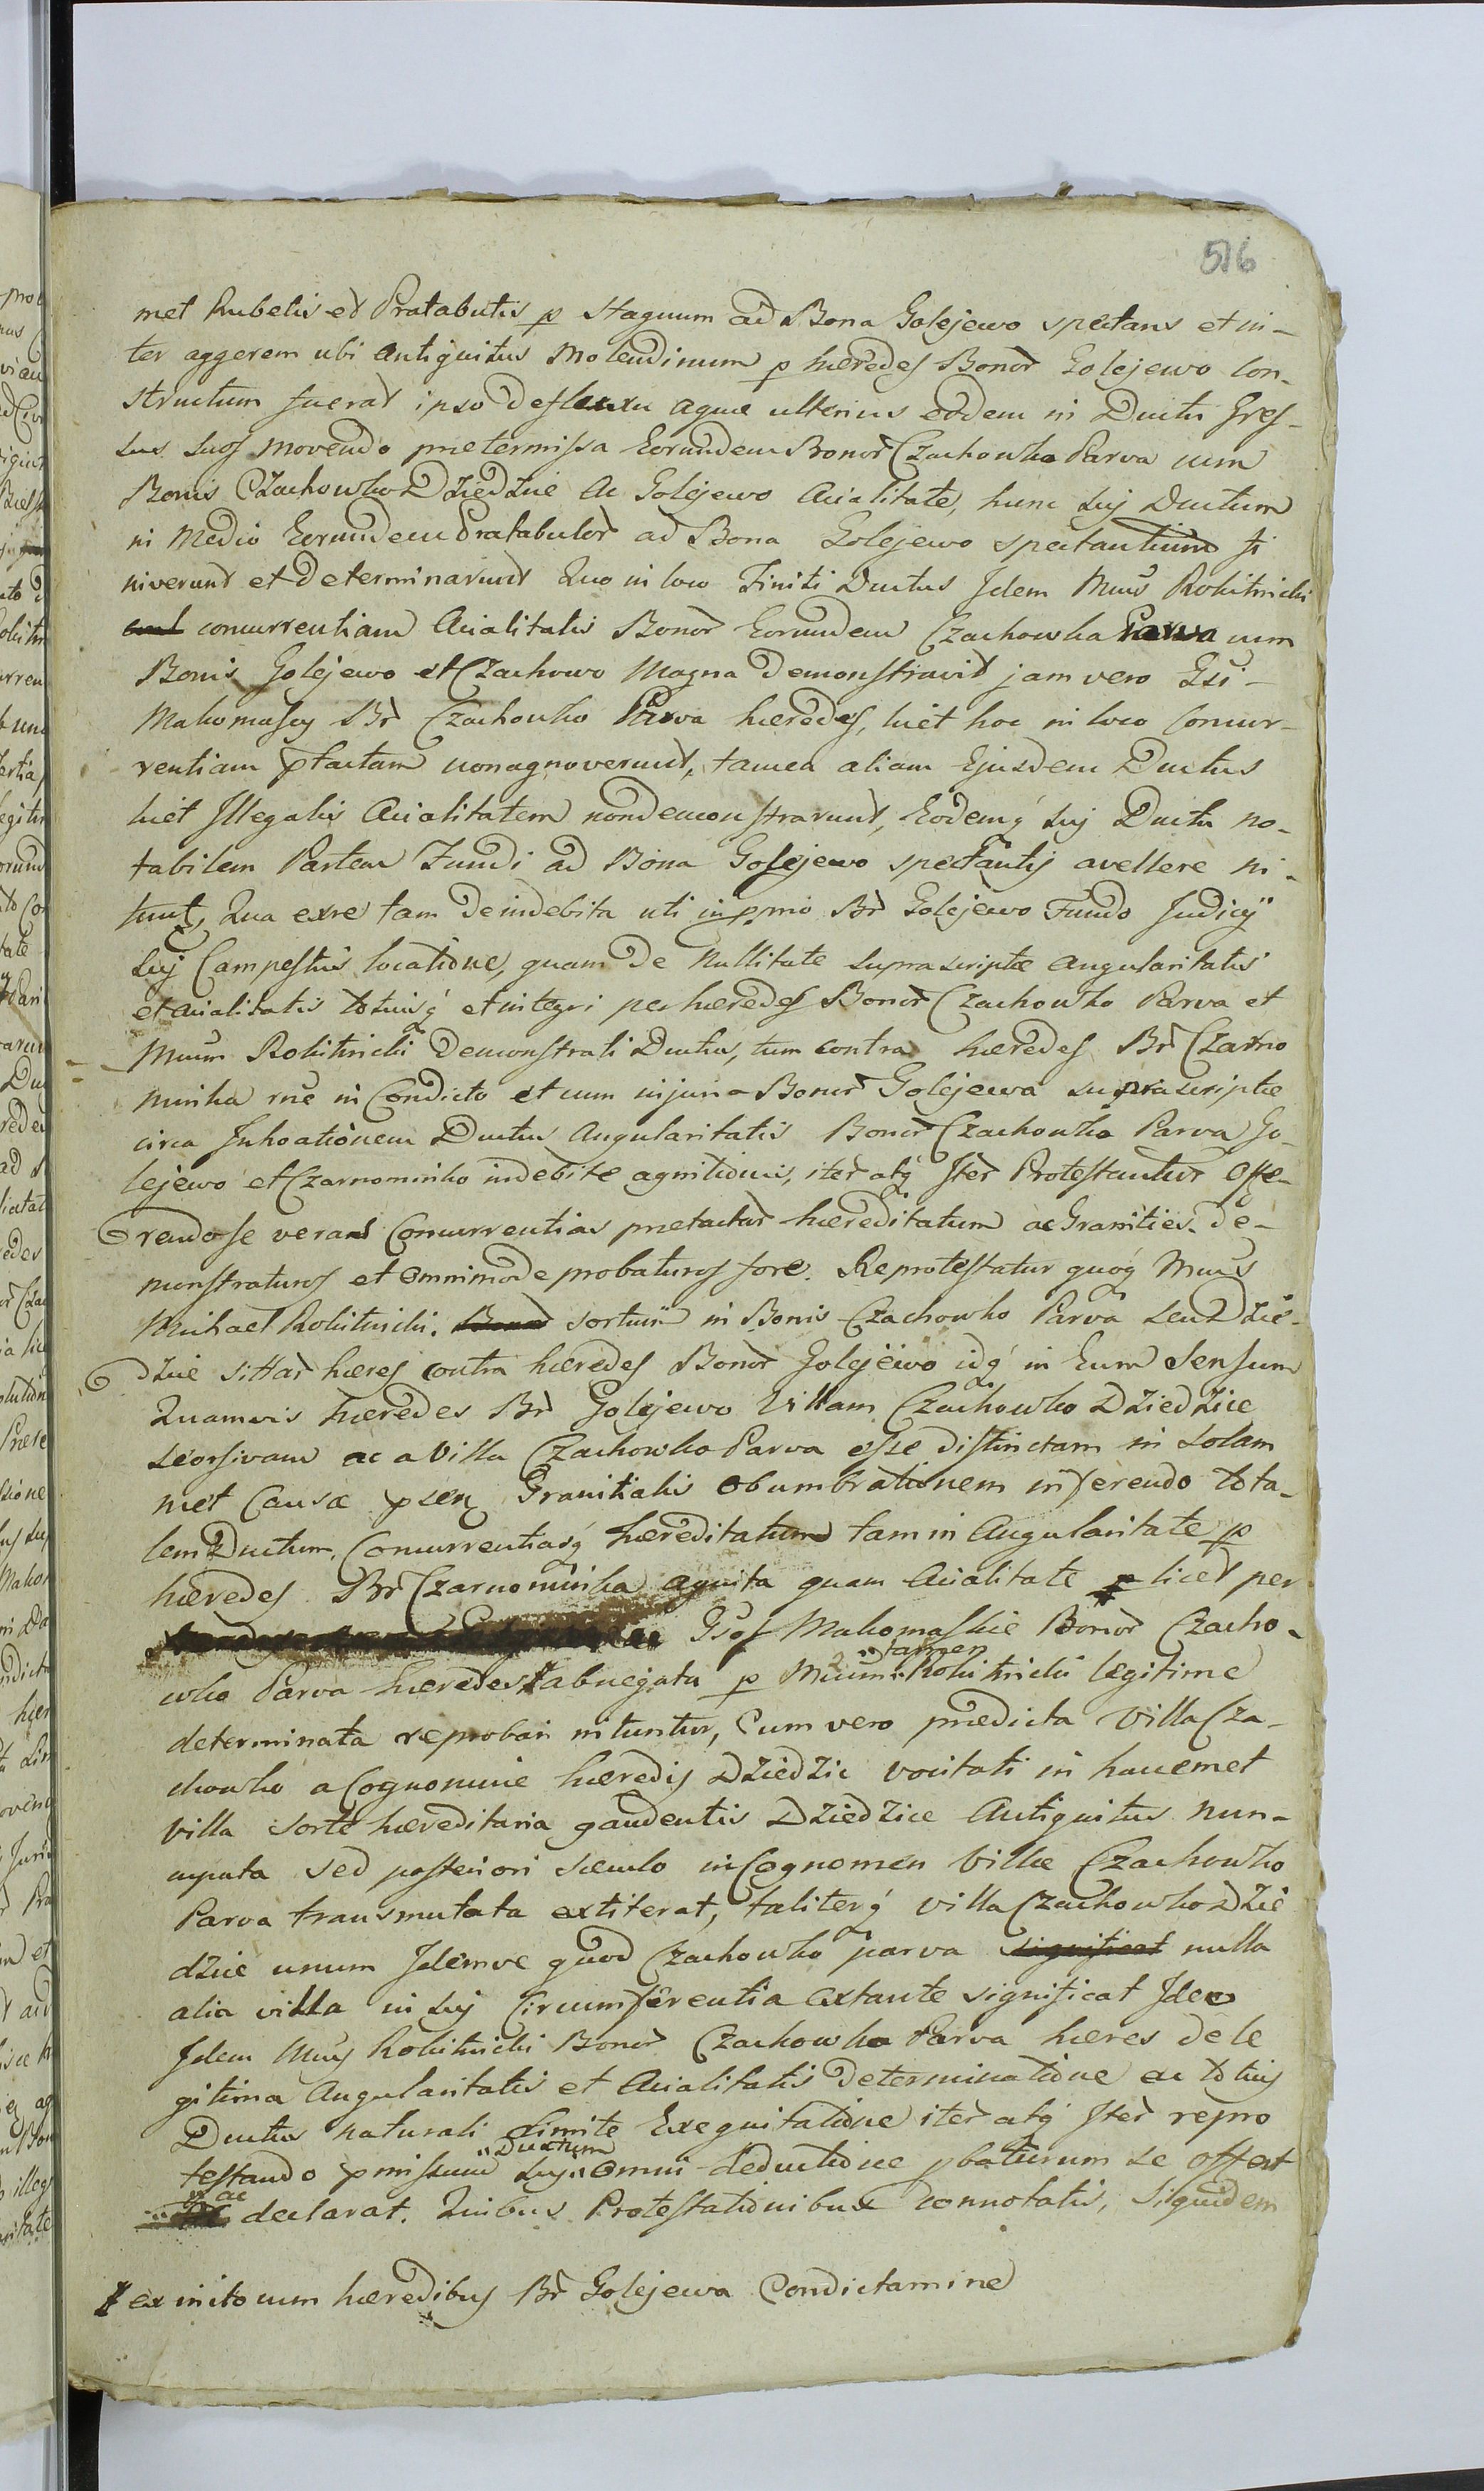 516
met Rubetis et Pratabutis p Stagnum ad Bona Golejewo spectans et in-
ter aggerem ubi antiquitus Molendinum p hæredes Bonor Golejewo Con-
structum fuerat ipso defluxu aquæ ulterius eodem in Ductu Gres-
sus suos movendo prætermissa Eorundem Bonor Czachowko Parva cum
Bonis Czachowko Dziedzice ac Golejewo Acialitate, hunc suj Ductum
in Medio Eorundem Pratabulor ad Bona Golejewo spectantium fi
niverunt et determinarunt Quo in loco Finiti Ductus Idem Mcus Rokitnicki
concurrentiam Acialitatis Bonor Eorundem Czachowka Parva cum
Bonis Golejewo et Czachowo Magna demonstravit jam vero Gsi
Makomascy Br Czachowko Parva hæredes, licet hoc in loco Concur-
rentiam ptactam nonagnoverunt, tamen aliam Ejusdem Ductus
licet Illegalis Acialitatem nondemonstrarunt, Eodemq suj Ductu no-
tabilem Partem Fundi ad Bona Golejewo spectantis avellere ni-
tunt, Qua exre tam de indebita uti in pmio Br Golejewo Fundo Judicij
suj Campestris locatione, quam de Nullitate supra scriptæ angularitatis
et acialitatis totiusq et integri per hæredes Bonor Czachowko Parva et
Mcum Rokitnicki demonstrati Ductus, tum contra hæredes Br Czarno
minka rne in Condicto et cum injuria Bonor Golejewa supra scriptæ
circa Inhoationem Ductus Angularitatis Bonor Czachowko Parva Go-
lejewo et Czarnominko indebite agnitionis, iter atq Iter Protestantur Offe-
rendo se veras Concurrentias prætactar hæreditatum ac Granities de-
monstraturos et omnimode probaturos fore. Reprotestatur quoq Mcus
Michael Rokitnicki. sortium in Bonis Czachowko Parva seu Dzie-
dzice sittar hæres contra hæredes Bonor Golejewo idq in Eum Sensum
Quamvis hæredes Br Golejewo Villam Czachowko Dziedzice
seorsivam ac a Villa Czachowko Parva esse distinctam in solam
met Causæ psen Granitialis obumbrationem inferendo tota-
lem Ductum, Concurrentiasq hæreditatum tam in Angularitate p
hæredes Br Czarnominka agnita quam Acialitate licet per
Gsos Makomaskie Bonor Czacho-
wko Parva hæredes abnegata p Mcum tamen Rokitnicki legitime
determinata reprobari nituntur, Cum vero prædicta Villa Cza-
chowko a Cognomine hæredis Dziedzic vocitati in hancmet
Villa sorte hæreditaria gaudentis Dziedzice Antiquitus nun-
cupata sed posteriori sæculo in Cognomen Villæ Czachowko
Parva transmutata extiterat, taliterq villa Czachowko Dzie
dzice unum Idemve quod Czachowko parva significat nulla
alia villa in suj Circumferentia extante significat Ideo
Idem Mcus Rokitnicki Bonor Czachowko Parva hæres de le
gitima Angularitatis et Acialitatis determinatione ac totius
Ductus naturali limite Exequitatione iter atq Iter repro
testando pmissum suj Ductum omni deductione pbaturum se offert
ac declarat. Quibus Protestationibus connotatis, Siquidem
ex inito cum hæredibus Br Golejewa Condictamine